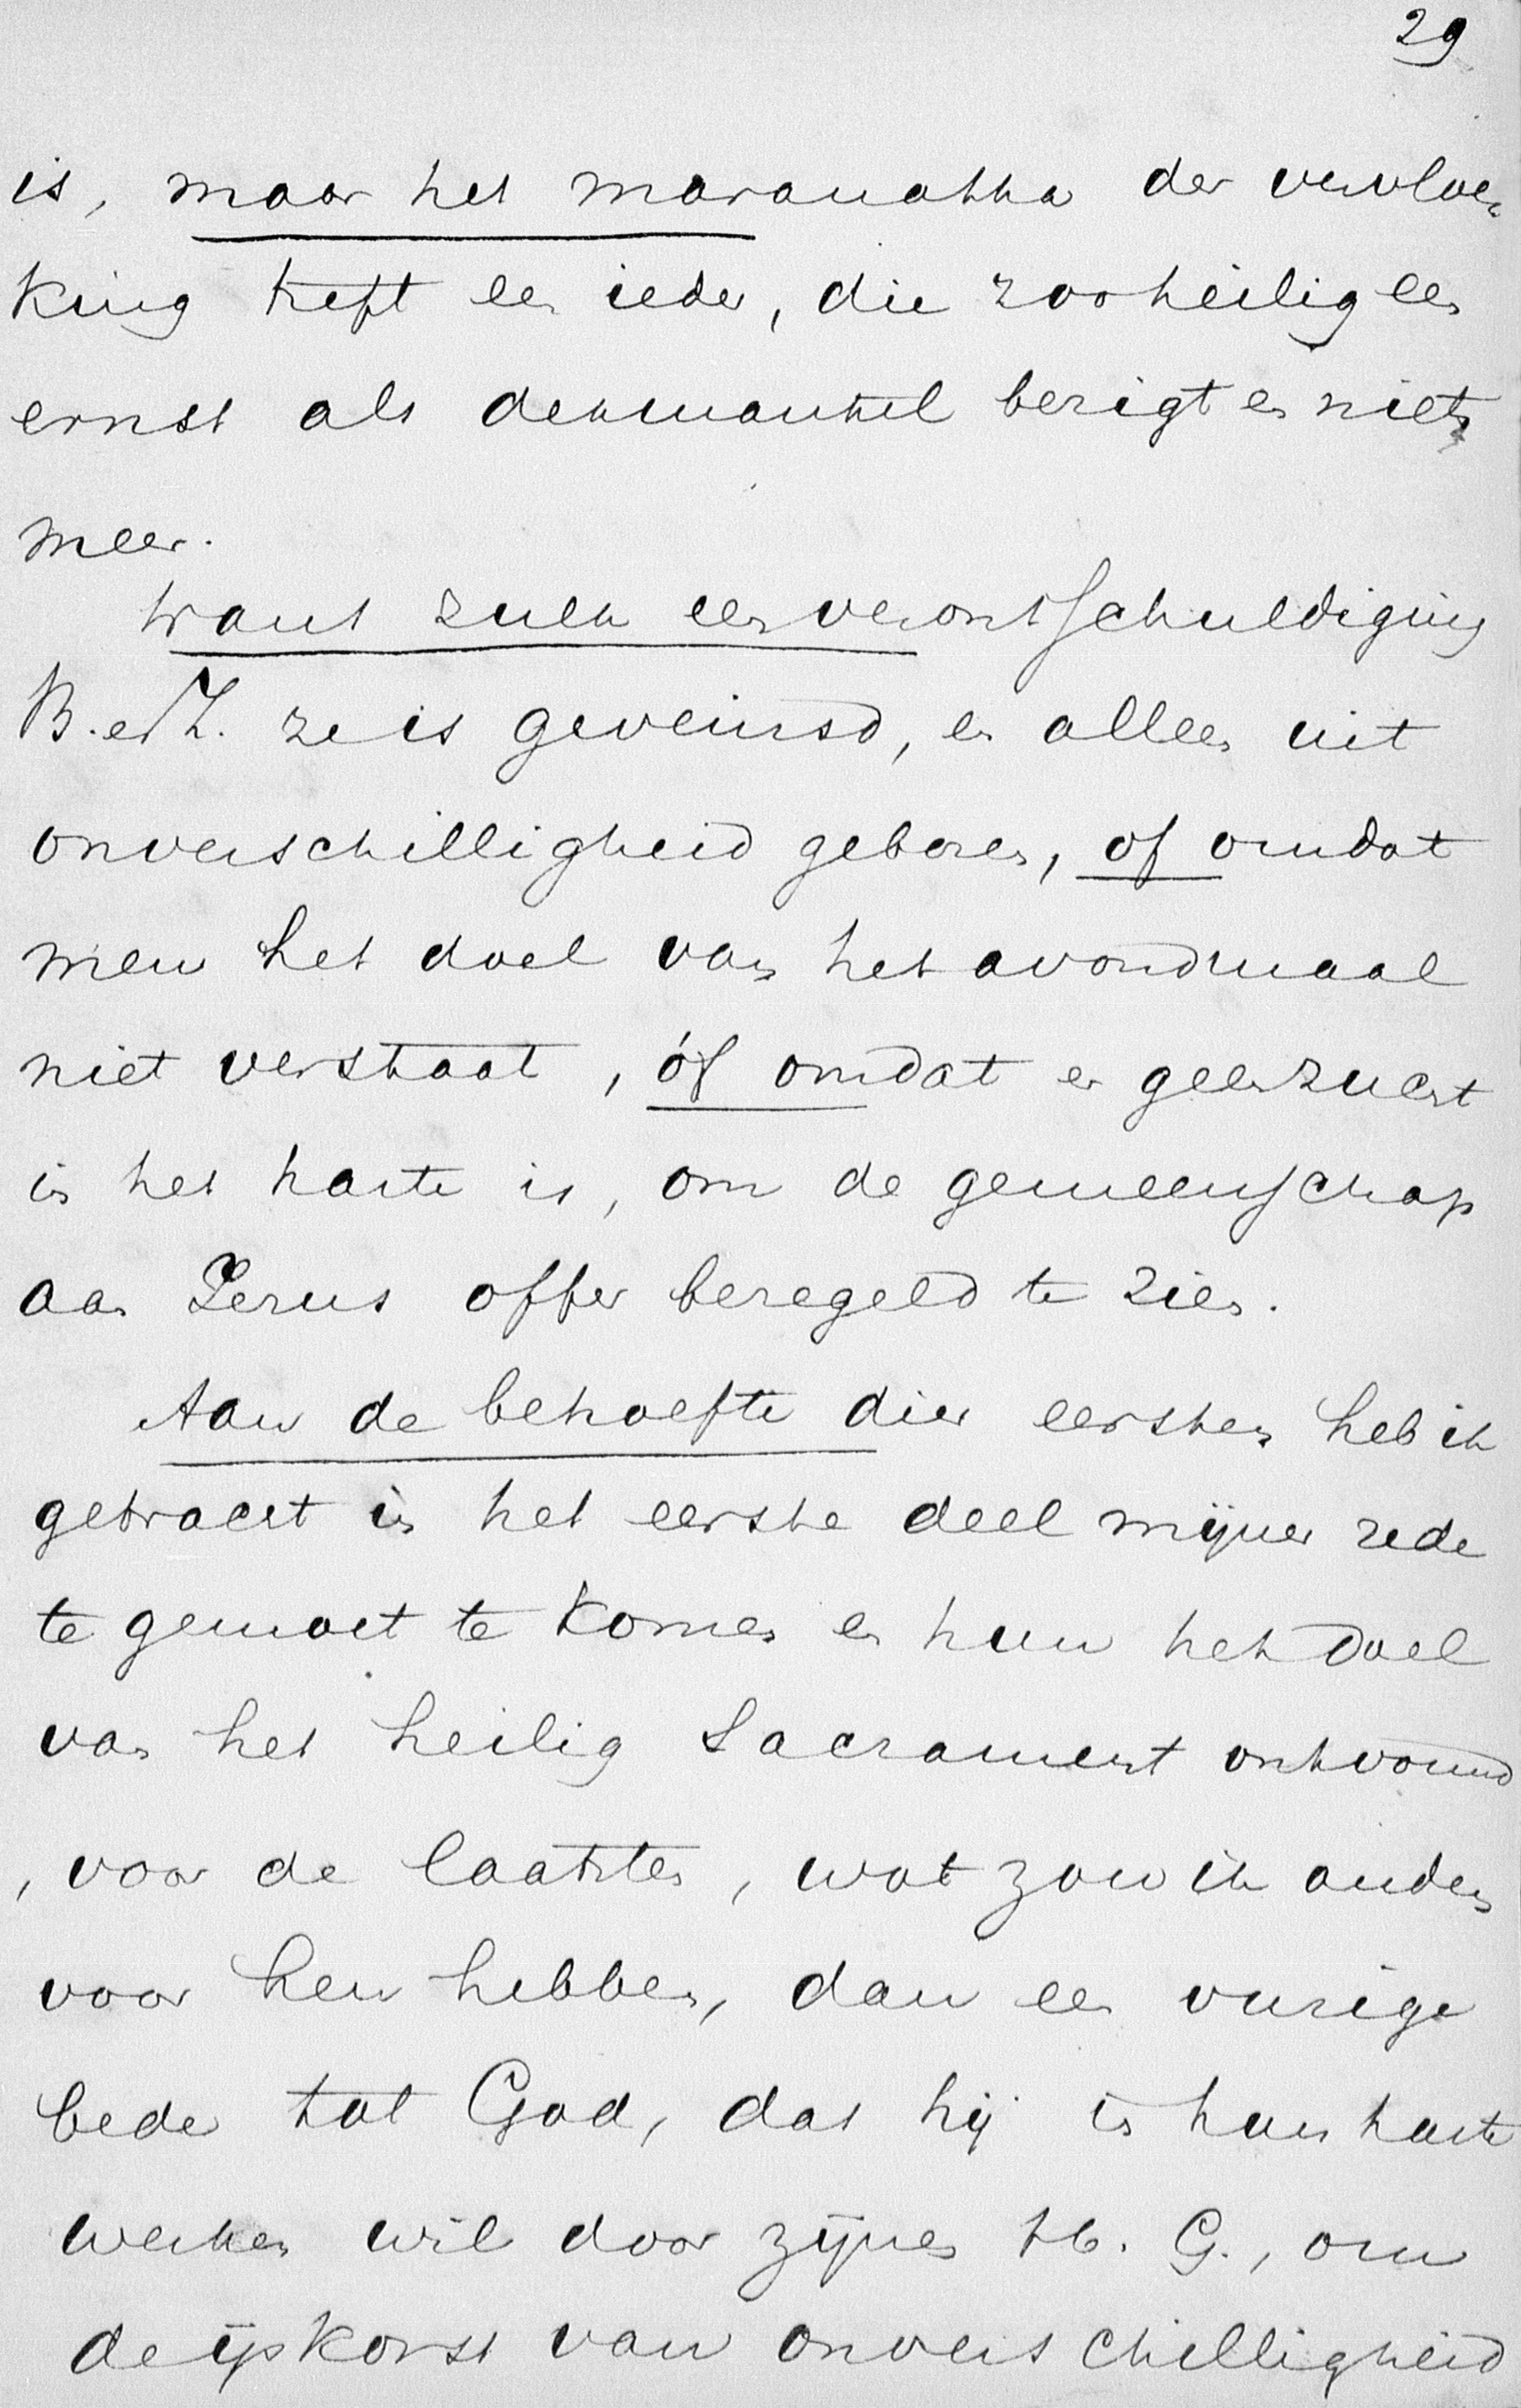 29
is, maar het maranatha der vervloe-
king treft een ieder, die zoo heilig een
ernst als dekmantel bezigt en niets
meer.
Want zulk een verontschuldiging
B. en Z. ze is geveinsd, en alleen uit
onverschilligheid geboren, of omdat
men het doel van het avondmaal
niet verstaat, óf omdat er geen zucht
in het harte is, om de gemeenschap
aan Jezus offer bezegeld te zien.
Aan de behoefte dier eersten heb ik
getracht in het eerste deel mijner rede
te gemoet te komen en hun het doel
van het heilig Sacrament ontvouwd
, voor de laatsten, wat zou ik anders
voor hen hebben, dan een vurige
bede tot God, dat hij in hun harte
werken wil door zijnen H. G., om
de ijskorst van onverschilligheid